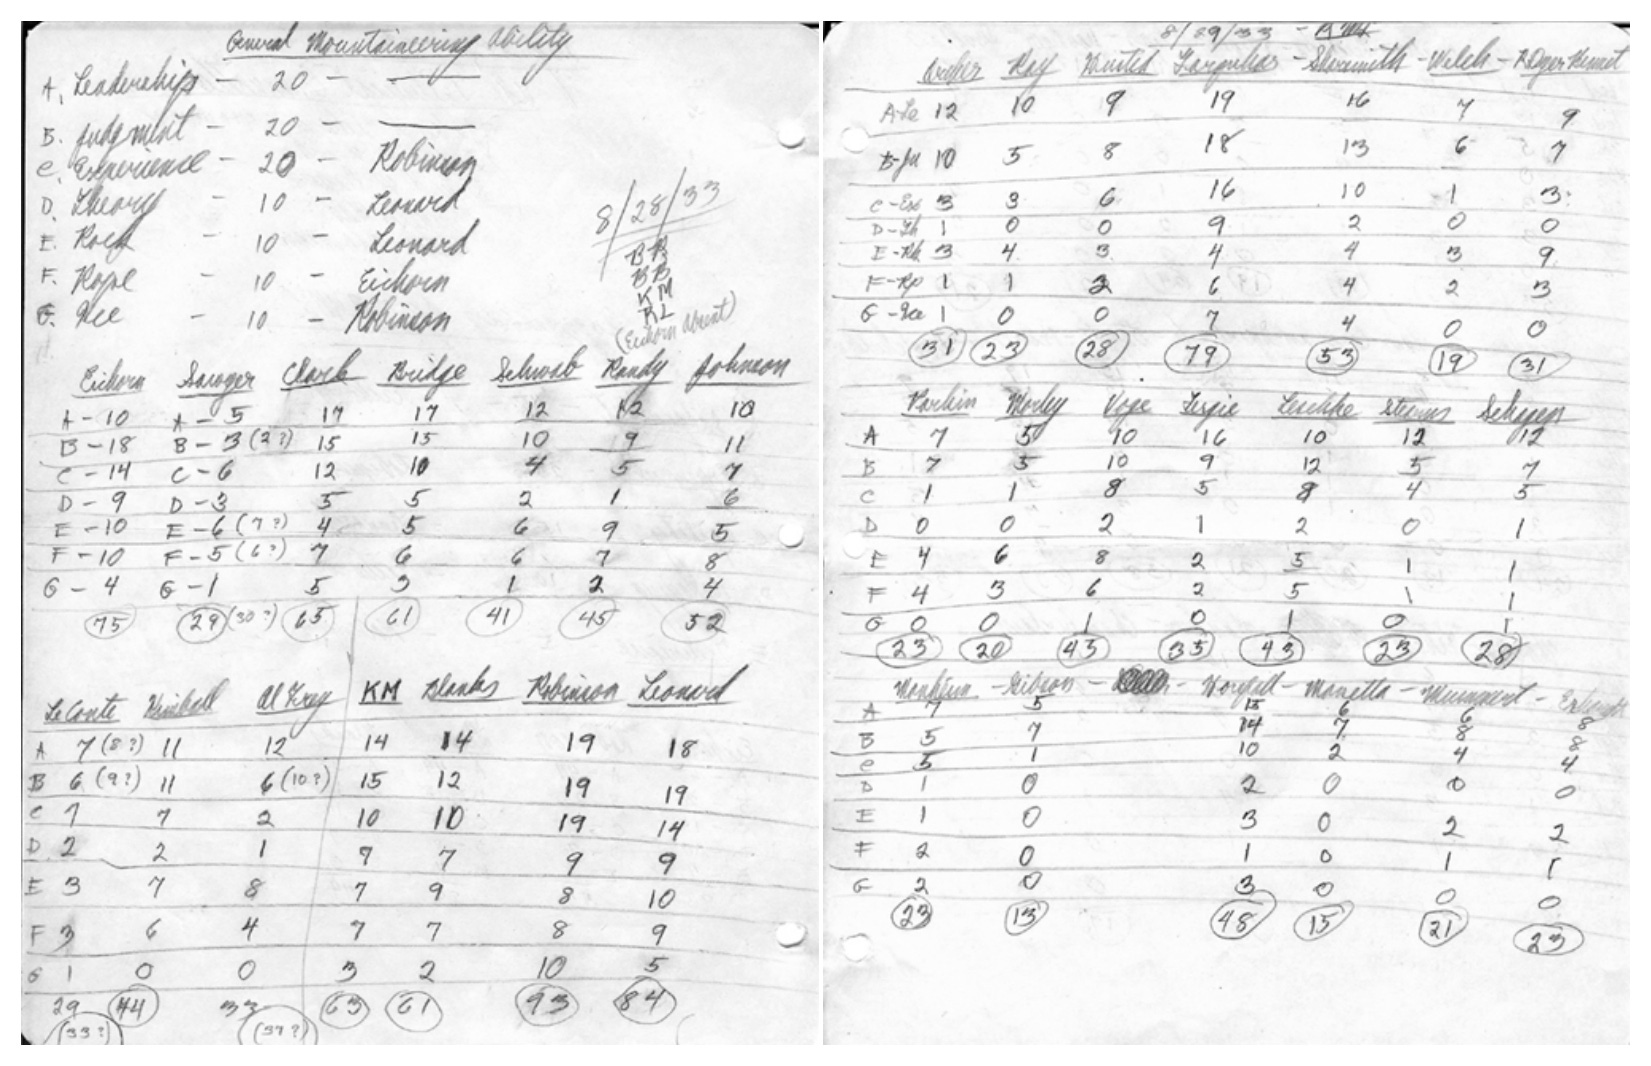 General Mountaineering Ability
A. Leadership - 20 -
B. Judgment - 20 -
C. Experience - 20 - Robinson
D. Theory - 10 - Leonard
E. Rock - 10 - Leonard
F. Rope - 10 - Eichorn
G. Ice - 10 - Robinson
8/28/33
BR
BB
KM
RL
(Eichorn absent)
Eichorn Clark Bridge Schwab Randy Johnson
A - 10 A - 5 17 17 12 12 10
B - 18 B - 3 (2?) 15 15 10 9 11
C - 14 C - 6 12 10 4 5 7
D - 9 D - 3 5 5 2 1 6
E - 10 E - 6 (7?) 4 5 6 9 5
F - 10 F - 5 (6?) 7 6 6 7 8
G - 4 G - 1 5 3 1 2 4
75 29 (30?) 65 61 41 45 52
LeConte Kimball Al Frey KM Blanks Robinson Leonard
A 7 (8?) 11 12 14 14 19 18
B 6 (9?) 11 6 (10?) 15 12 19 19
C 7 7 2 10 10 19 14
D. 2 2 1 7 7 9 9
E 3 7 8 7 9 8 10
F 3 6 4 7 7 8 9
G 1 0 0 3 2 10 5
29 44 33 63 61 93 84
(33?) (37?)
8/29/33 -
Kay Farquhar - - Welch -
A-Le 12 10 9 19 16 7 9
B-Ju 10 5 8 18 13 6 7
C-Ex 3 3 6 16 10 1 3
D-Th 1 0 0 9 2 0 0
E-Rk 3 4 3 4 4 3 9
F-Rp 1 1 2 6 4 2 3
G-Ice 1 0 0 7 4 0 0
31 23 28 79 53 19 31
Morley Voge
A 7 5 10 16 10 12 12
B 7 5 10 9 12 5 7
C 1 1 8 5 8 4 5
D 0 0 2 1 2 0 1
E 4 6 8 2 5 1 1
F 4 3 6 2 5 1 1
G 0 0 1 0 1 0 1
23 20 45 35 43 23 28
- Gibson - - - Manetta - -
A 7 5 15 6 6 8
B 5 7 14 7 8 8
C 5 1 10 2 4 4
D 1 0 2 0 0 0
E 1 0 3 0 2 2
F 2 0 1 0 1 1
G 2 0 3 0 0 0
23 13 48 15 21 23